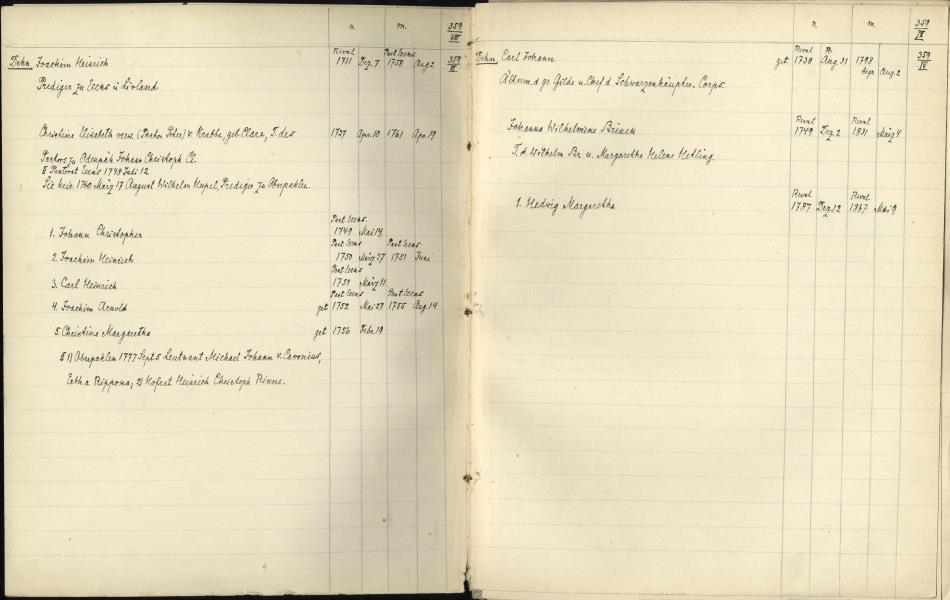 n. m. 359
VIII
Reval Past. Eecks
Dehn Joachim Heinrich 1711 Dez. 7 1758 Aug 2 359
Prediger zu Eecks u. Livland
Christine Elisabeth verw. (Pastor Peter) v. Krabbe, geb. Clare, T. des 1727 Apr. 10 1761 Apr. 19
Pastors zu Odenpäh Johann Christoph Cl.
§ Pastorat Eecks 1748 Juli 12
Sie heir. 1760 März 17 August Wilhelm Hupel, Prediger zu Oberpahlen.
Past Eecks
1. Johann Christopher 1749 Mai 14
Past Eecks Past Eecks
2. Joachim Heinrich 1750 März 27 1751 Juni
Past Eecks
3. Carl Heinrich 1751 März 11
Past Eecks Past Eecks
4. Joachim Arnold get 1752 Mai 27 1755 Aug. 14
5. Christine Margaretha get 1756 Febr. 19
§ 1) Oberpahlen 1777 Sept 5 Leutnant Michael Johann v. Cavonius,
Erbh. a. Ripona; 2) Hofger. Heinrich Christoph Rinne.
n. m. 359
IX
Reval R.
Dehn Carl Johann get 1738 Aug. 31 1798 359
IV
begr Aug. 2
Älterm. d. gr. Gilde u. Chef d. Schwarzenhäupter-Corps.
Reval Reval
Johanna Wilhelmine 1749 Dez. 2 1831 März 4
T. d. Wilhelm Br. u. Margaretha Helene Hetling.
Reval Reval
1. Hedwig Margaretha 1787 Dez 12 1867 Mai 9